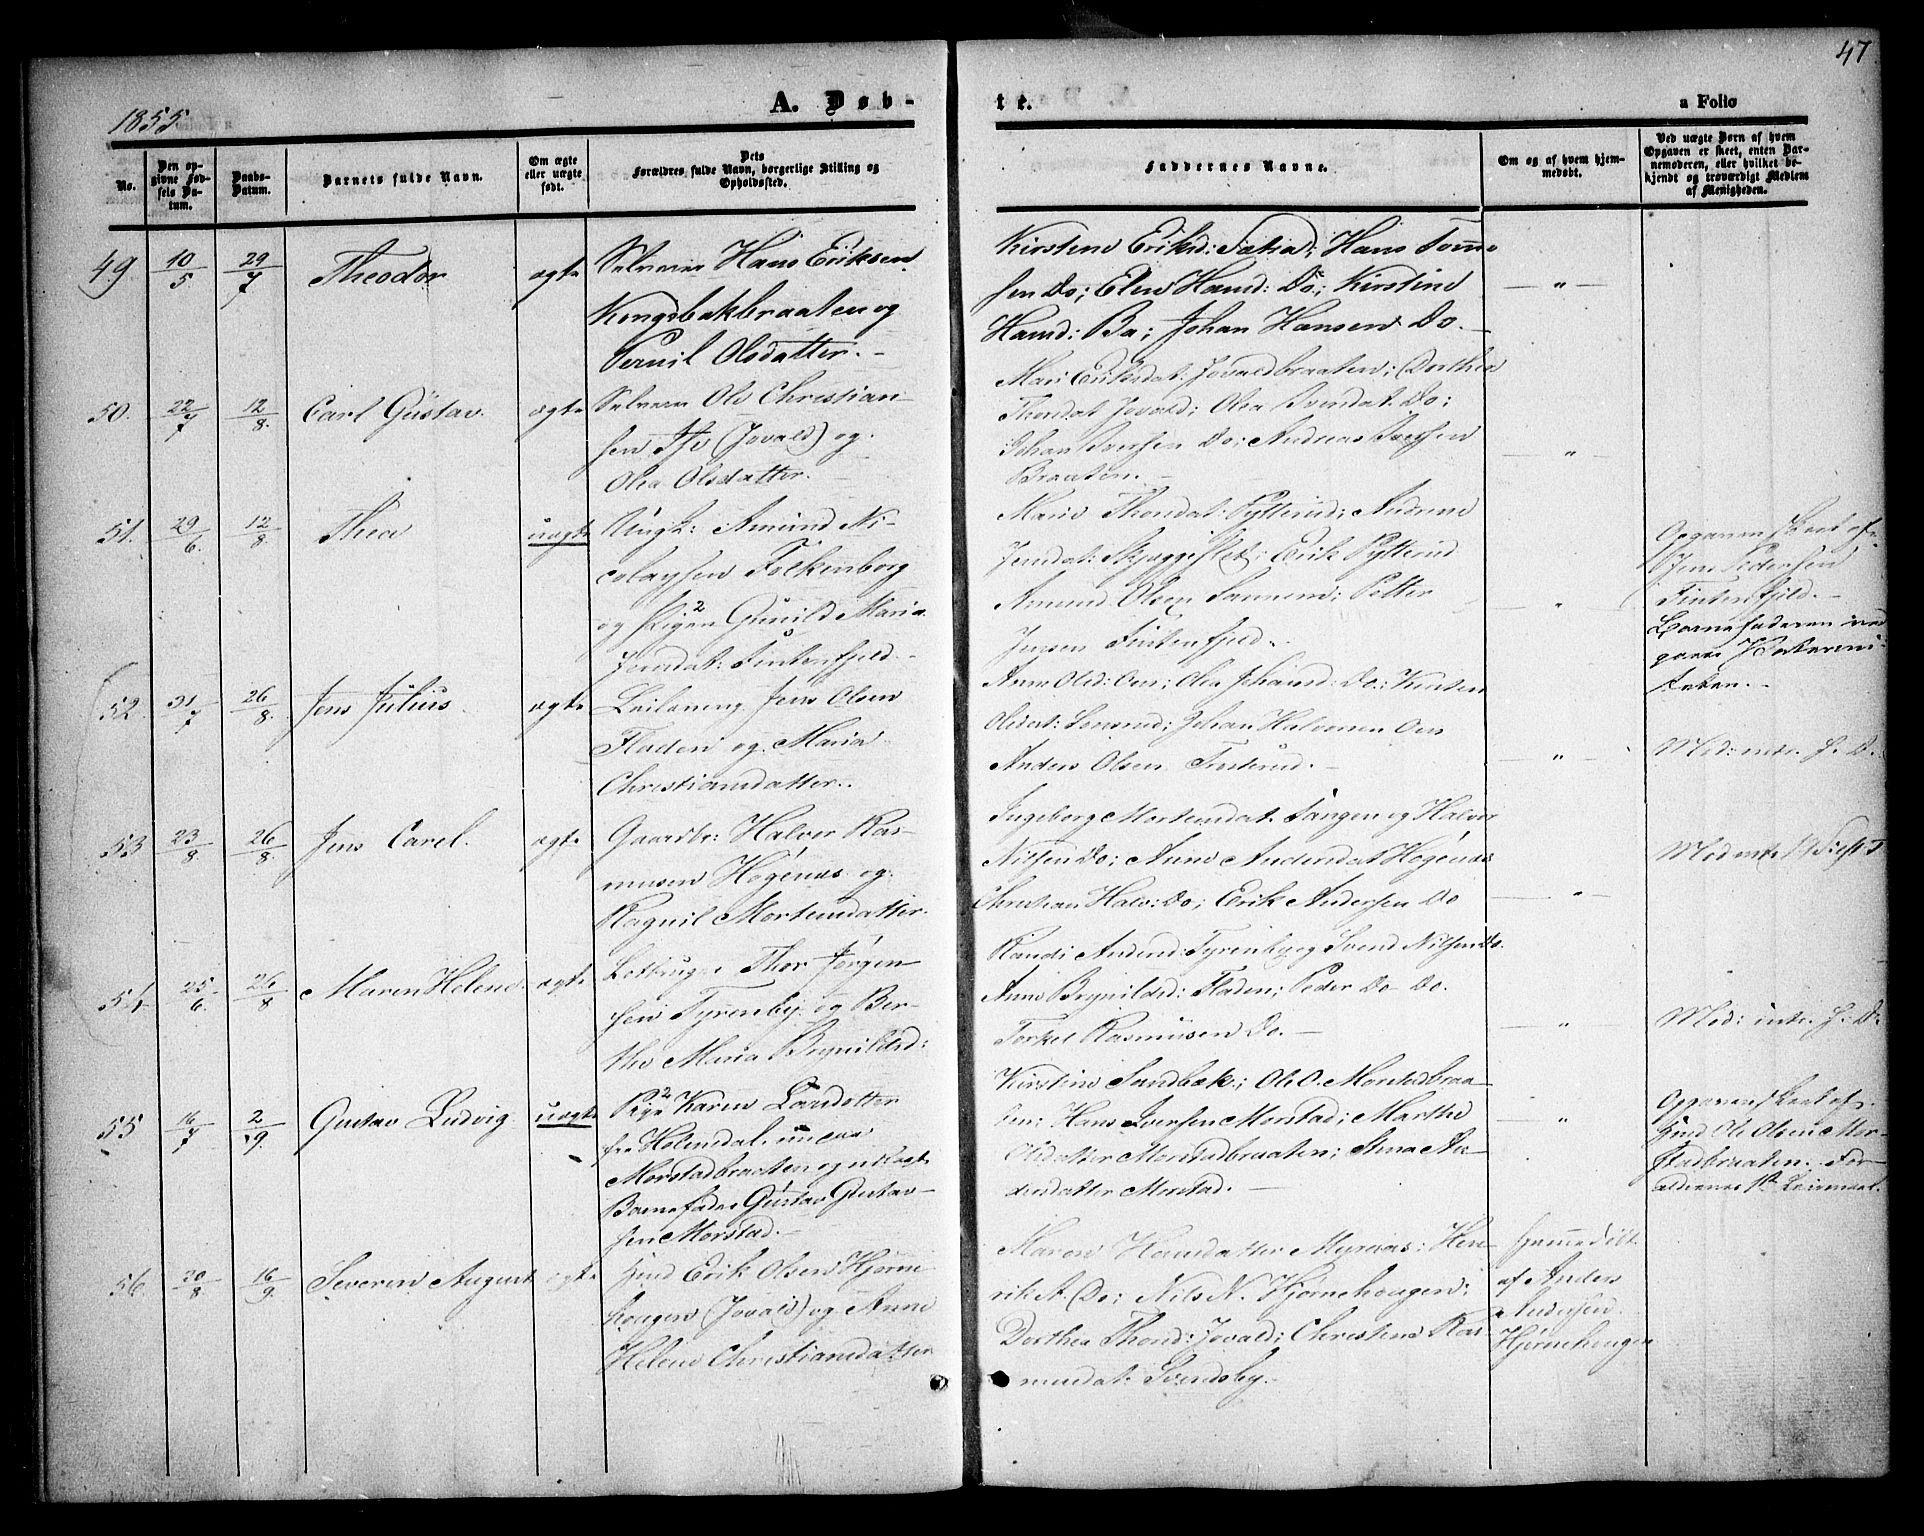 47
1855
A. Døb-
te.
a Folio
No.
Den opgivne Fødsels Datum.
Daabs-Datum.
Barnets fulde Navn.
Om ægte eller uægte født.
Dets Forældres fulde Navn, borgerlige Stilling og Opholdssted.
Faddernes Navne.
Om og af hvem hjemmedøbt.
Ved uægte Børn af hvem Opgaven er skeet, enten Barnemoderen, eller hvilket bekjendt og troværdigt Medlem af Menigheden.
49. 10/5 29/7 Theodor ægte
Selveier Hans Eriksen
Kongsbakbraaten og
Pernil Olsdatter.
Kirstine Eriksd: Hans
sen Do; Elen Hansd: Do; Kirstine
Hansd: Ba; Johan Hansen Do.
— " —
50. 22/7 12/8. Carl Gustav. ægte
Selveier Ole Christian-
sen (Jovald) og
Olea Olsdatter.
Mari Eriksdat: Jovaldbraaten; Dorthea
Thorsdat Jovald; Olea Svendsdat. Do;
Johan Iversen Do; Andreas Iversen
Braaten.
— " —
51. 29/6. 12/8. Thea uægte
Ungk: Amund Ni-
colaysen Folkenborg
og Pigen Gunild Maria
Jensdat: Finstenfjeld.
Maria Thorsdat: Pytterud;
Jensdat: Erik Pytterud
Amund Olsen Petter
Jensen Finstenfjeld.
"
Opgaven skeet af
Jens Pedersen
Finstenfjeld.
Barnefaderen ved
52. 31/7 26/8. Jens Julius. ægte
Leilænding Jens Olsen
Fladen og Maria
Christiansdatter.
Anne Olsd: Oen; Olea Johansd: Do: Kirsten
Olsdat: Johan Halvorsen Oen
Anders Olsen Finterud.
"
Med: intr. J. D.
53 23/8. 26/8. Jens Carel. ægte
Gaardbr: Halvor Ras-
musen Høgenæs og
Ragnil Mortensdatter.
Ingeborg Mortensdat. Tangen og Halvor
Nilsen Do; Anne Andersdat Høgenæs
Christian Halv: Do; Erik Andersen Do
"
54. 25/6. 26/8 Maren Helene. ægte
Thor Jørgen-
sen Tyrenby og Ber-
the Maria Brynildsd:
Randi Andersd: Tyrenby og Svend Nilsen Do.
Anne Brynildsd: Fladen; Peder Do Do.
Torkel Rasmusen Do.
"
Med: intr. J. D.
55 16/7 2/9. Gustav Ludvig uægte
Pige Karen Larsdatter
fra Holendal
Morstadbraaten og
Barnefader Gustav Gustav-
sen Morstad.
Kirstine Sandbæk; Ole O. Morstadbraa-
ten; Hans Iversen Morstad; Marthe
Olsdatter Morstadbraaten; An-
dersdatter Morstad.
"
Opgaven skeet af
Hmd Ole Olsen Mor-
stadbraaten. For-
ældrenes 1ste Leiermaal.
56. 30/8 16/9. Severin August ægte
Hmd Erik Olsen Hjørne-
hougen (Jovald) og Anne
Helene Christiansdatter
Maren Hansdatter Myrnæs; Hen-
rik A. Do; Nils N. Hjørnehougen;
Dorthea Thorsd: Jovald; Christine Ras-
musdat: Svendsby.
hjemmedøbt
af Anders
Andersen
Hjørnehougen